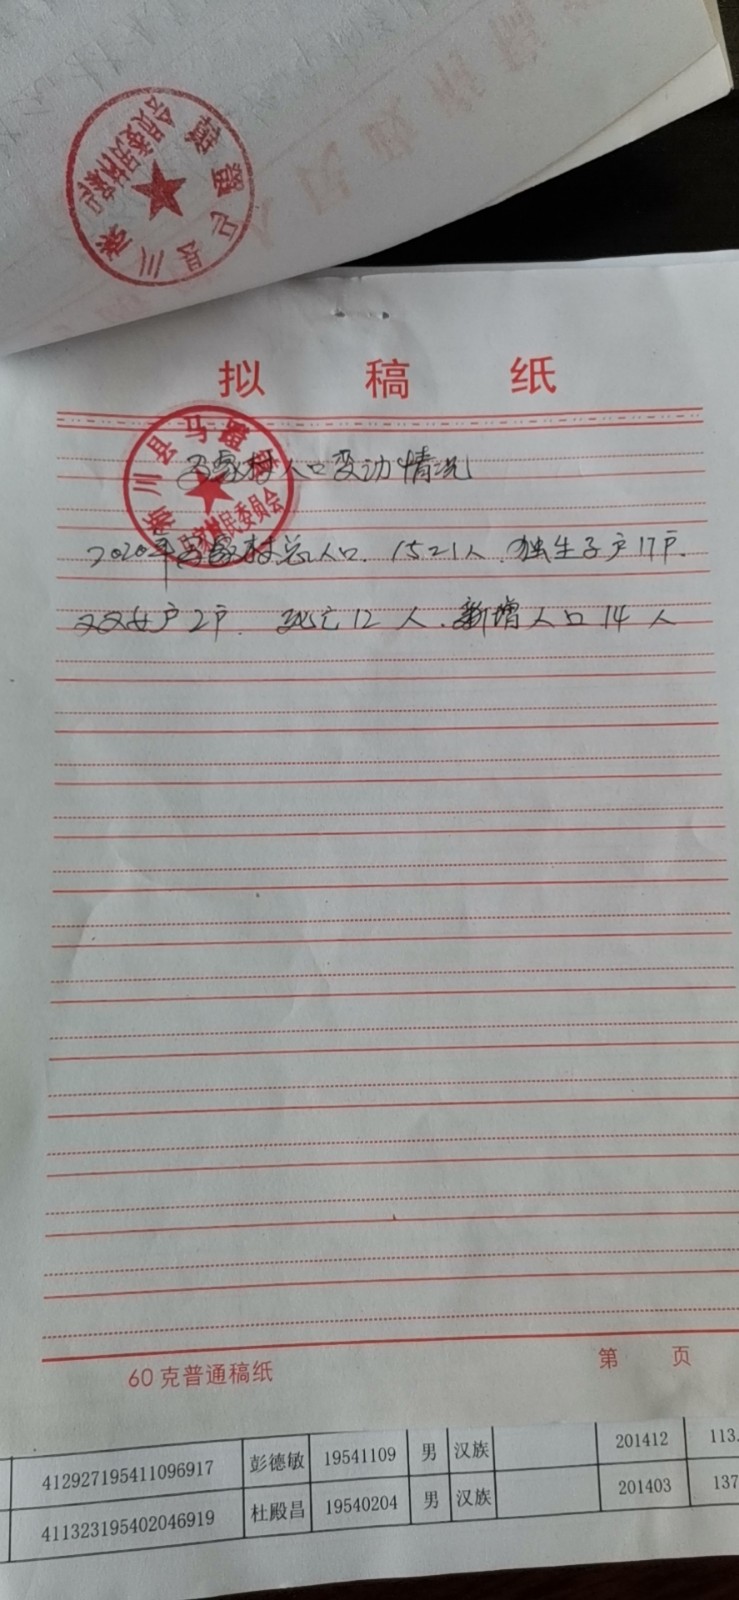 拟稿纸
淅川县马蹬镇
村民委员会
人口变动情况
2020年 家村总人口. 1521人. 独生子户17户.
双女户2户. 死亡12人. 新增人口14人
60克普通稿纸
第 页
412927195411096917 彭德敏 19541109 男 汉族 201412 113.
411323195402046919 杜殿昌 19540204 男 汉族 201403 137